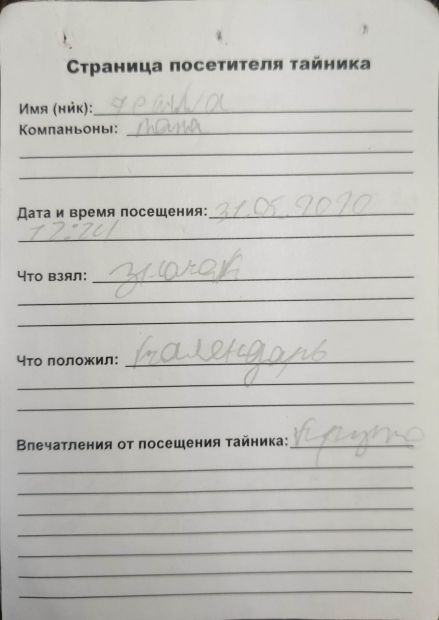 Страница посетителя тайника
Имя (ник):
Компаньоны: папа
Дата и время посещения: 31.05.2020
17:24
Что взял: значок
Что положил: календарь
Впечатления от посещения тайника: круто